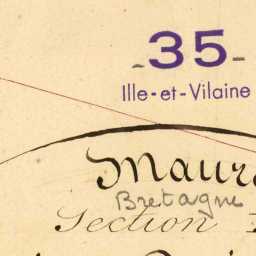 -35-
Ille-et-Vilaine
Maur
Bretagne
Section